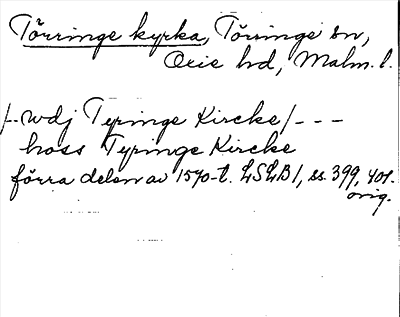 Törringe kyrka, Törringe sn,
Oxie hd, Malm. l.
/- wdj Tyringe Kircke/ - - -
hoss Tyringe Kircke
förra delen av 1570-t. LSLB1, ss. 399, 401.
orig.